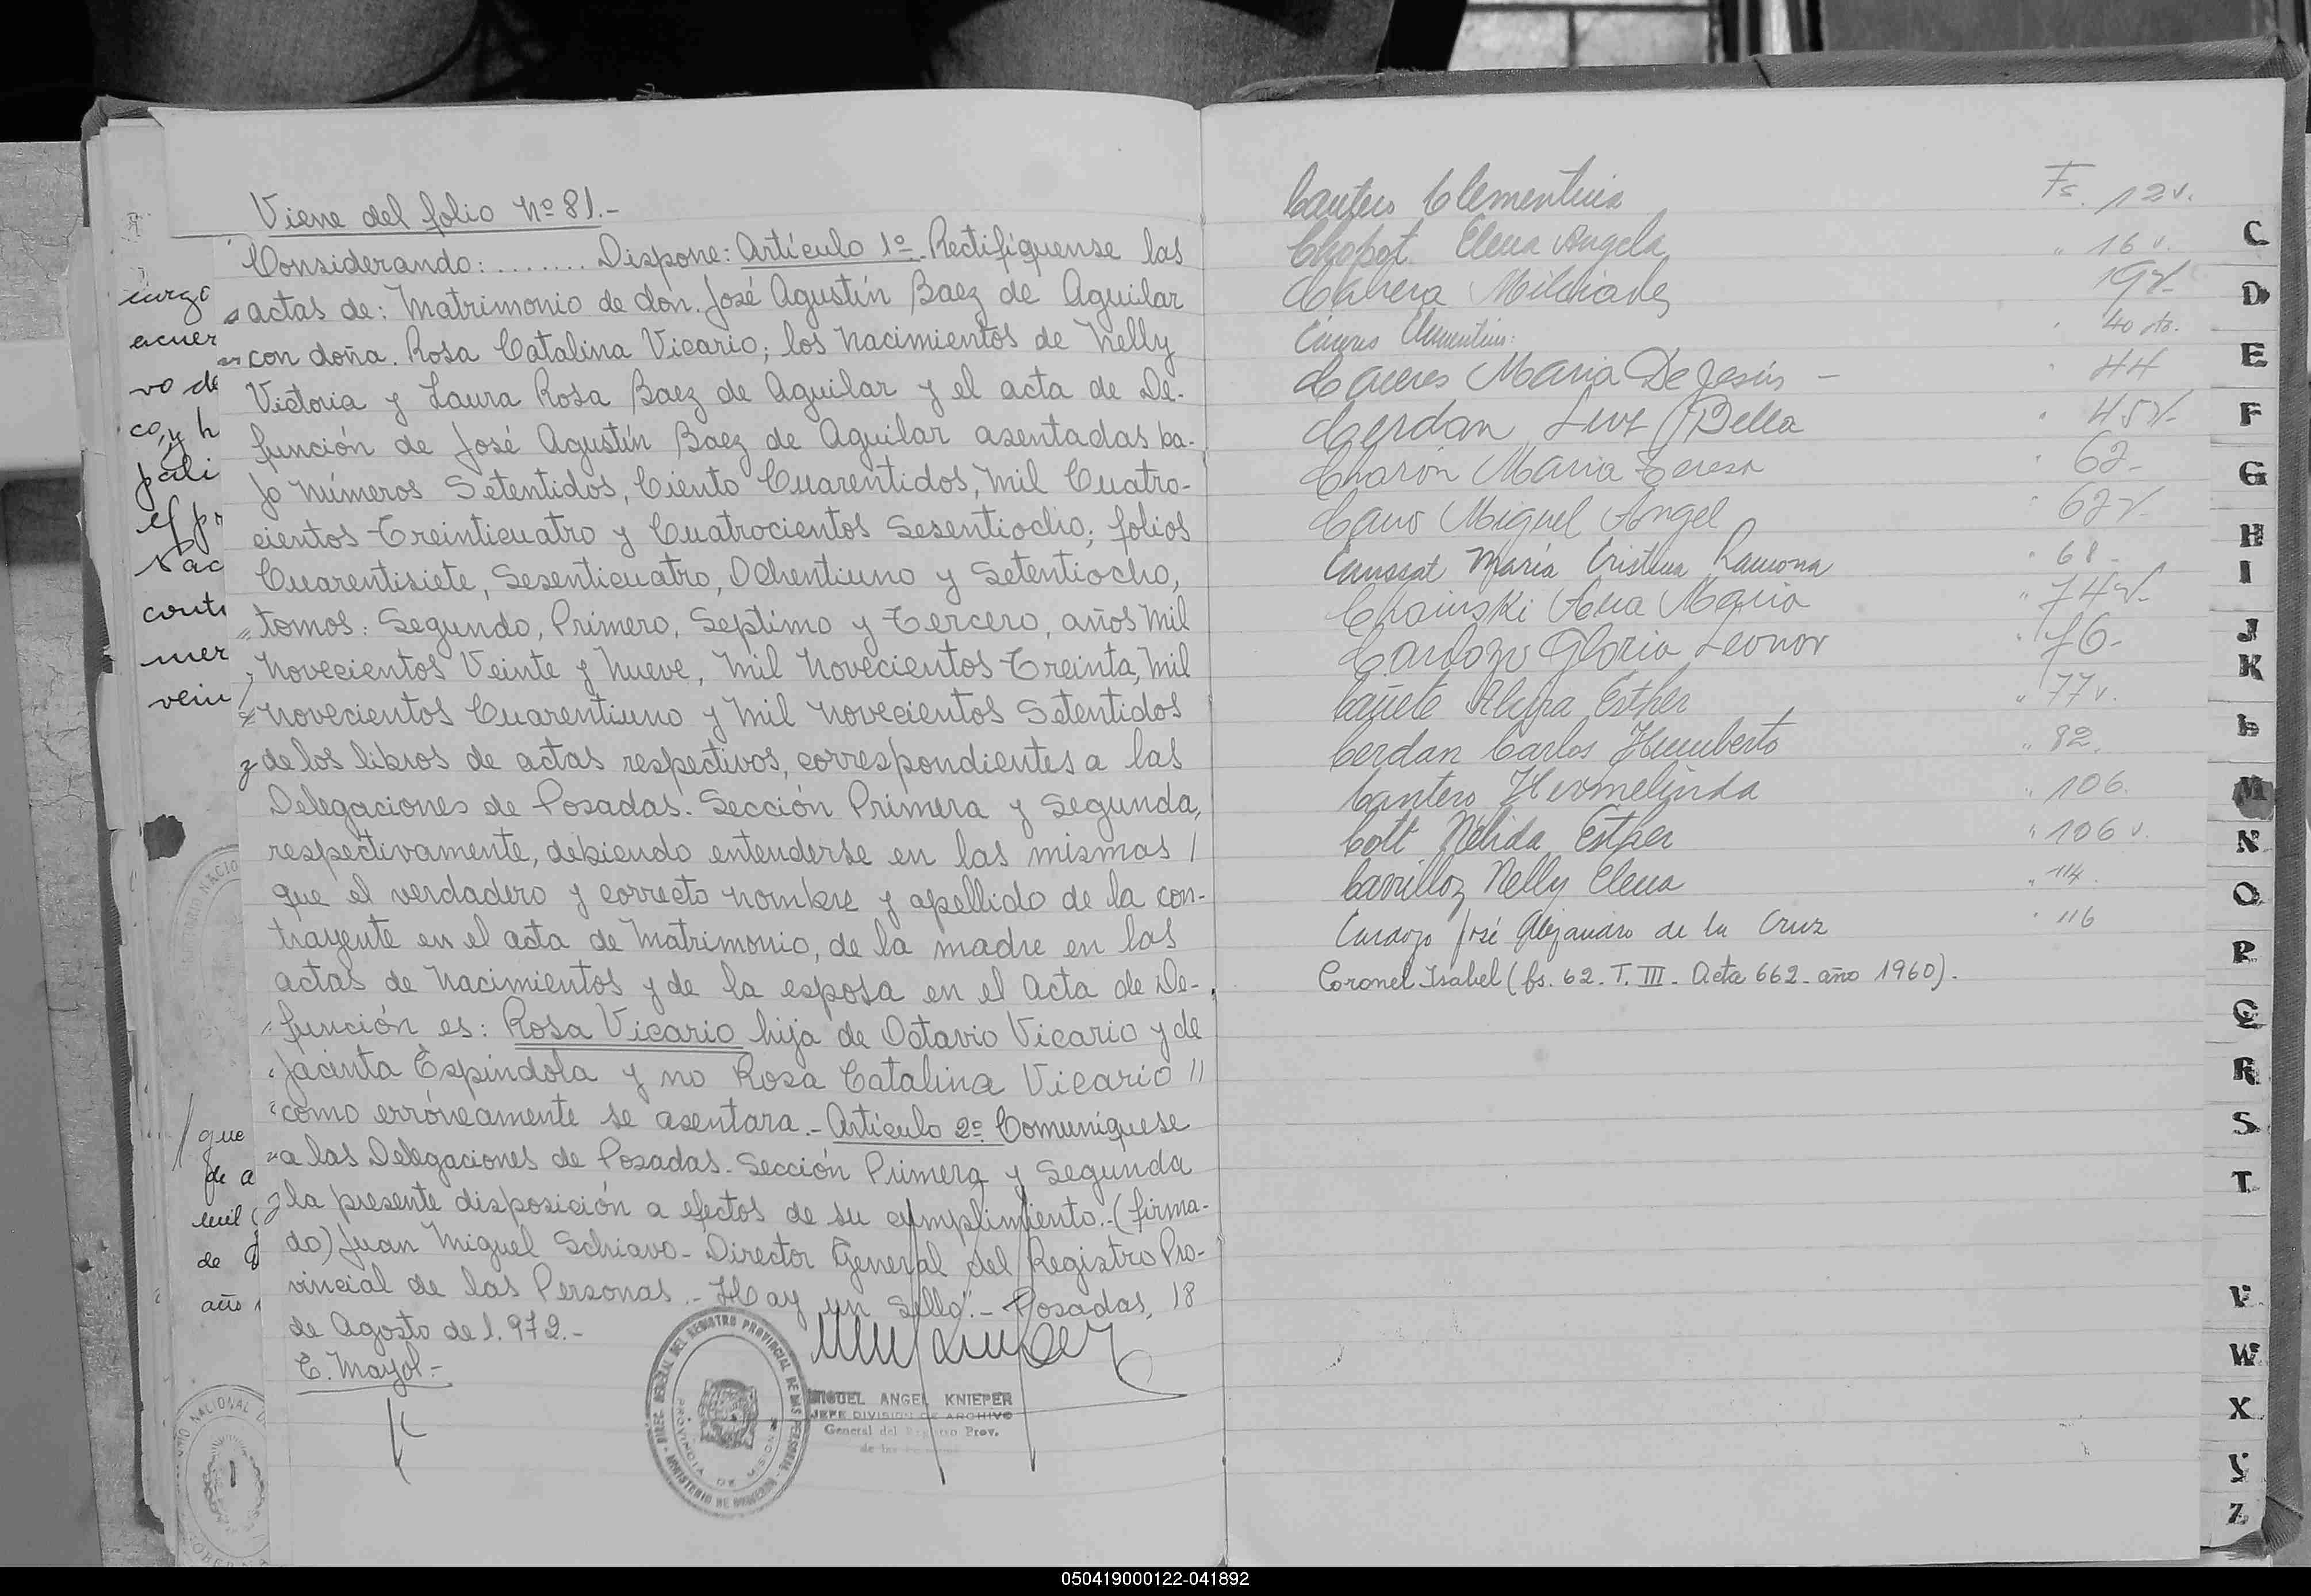 Viene del folio Nº 81.-
Considerando: ....... Dispone: Artículo 1º. Rectifíquense las
actas de: Matrimonio de don. José Agustín Baez de Aguilar
con doña. Rosa Catalina Vicario; los Nacimientos de Nelly
Victoria y Laura Rosa Baez de Aguilar y el acta de De-
función de José Agustín Baez de Aguilar asentadas ba-
jo Números Setentidos, Ciento Cuarentidos, Mil Cuatro-
cientos Treinticuatro y Cuatrocientos Sesentiocho; folios
Cuarentisiete, Sesenticuatro, Ochentiuno y Setentiocho,
tomos: Segundo, Primero, Septimo y Tercero, años Mil
Novecientos Veinte y Nueve, Mil Novecientos Treinta, Mil
Novecientos Cuarentiuno y Mil Novecientos Setentidos
de los libros de actas respectivos, correspondientes a las
Delegaciones de Posadas. Sección Primera y Segunda,
respectivamente, debiendo entenderse en las mismas /
que el verdadero y correcto nombre y apellido de la con-
trayente en el acta de Matrimonio, de la madre en las
actas de Nacimientos y de la esposa en el Acta de De-
función es: Rosa Vicario hija de Octavio Vicario y de
Jacinta Espíndola y no Rosa Catalina Vicario //
como erróneamente se asentara.- Artículo 2º. Comuníquese
a las Delegaciones de Posadas. Sección Primera y Segunda
la presente disposición a efectos de su cumplimiento.- (firma-
do) Juan Miguel Schiavo- Director General del Registro Pro-
vincial de las Personas.- Hay un Sello".- Posadas, 18
de Agosto de 1.972.-
E. Mayol.-
MIGUEL ANGEL KNIEPER
JEFE DIVISION DE ARCHIVO
General del Registro Prov.
de las
DIREC. GENERAL DEL REGISTRO PROVINCIAL DE LAS PERSONAS - MINISTERIO DE GOBIERNO
PROVINCIA DE MISIONES
curzo
acuer
vo de
co, y h
el pr
mer
que
de a
mil
de
año
Cantero Clementina Fs. 12v.
Chopot Elena Angela " 16 v.
Cabrera Milciades 19v
Caceres Clementina 40 vto.
Caceres Maria De Jesús - 44
Cerdan Luz Delia 45v
Charón Maria Teresa 62-
Cano Miguel Angel 62v
Caussat María Cristina Ramona " 68-
Choinski Ana Maria " 74v-
Cardozo Gloria Leonor " 76-
Cañete Elvira Esther " 77v.
Cerdan Carlos Humberto " 82.
Cantero Hermelinda " 106.
Cott Nélida Esther " 106 v.
Carrilloz Nelly Elena " 114.
Cardozo José Alejandro de la Cruz " 116
Coronel Isabel (fs. 62. T. III - Acta 662 - año 1960).
C
D
E
F
G
H
I
J
K
L
M
N
O
P
Q
R
S
T
V
W
X
Y
Z
050419000122-041892